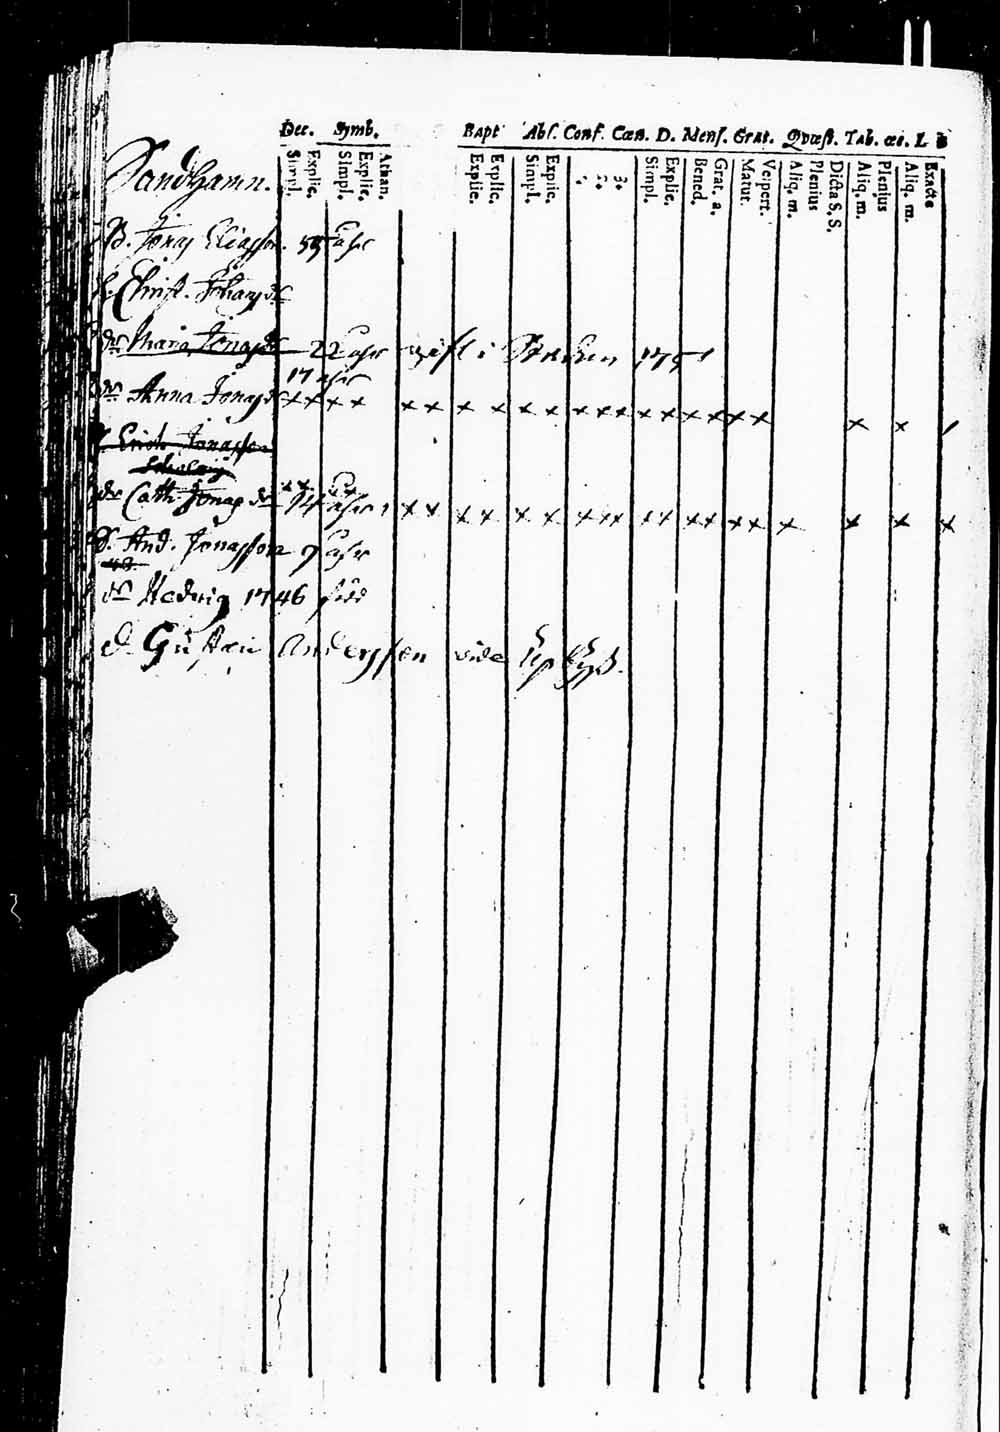 Dec. Symb. Bapt Abs. Conf. Cœn. D. Mens. Grat. Qvæst. Tab. œc. L
Simpl. Explic. Simpl. Explic. Athan. Explic. Explic. Simpl. Explic. 1. 2. 3. Simpl. Explic. Bened. Grat. a. Matut. Vespert. Aliq. m. Plenius Dicta S. S. Aliq. m. Plenius Aliq. m. Exacte
Sandhamn.
B. Jonas Eliasson. 55 åhr
h. Christ. Johansdr
dr Maria Jonasdr 22 åhr gift i 1751
17 åhr
dr Anna Jonasdr x x x x x x x x x x x x x x x x x x x x x x
Erich Jonasson
x x x x
dr Cath. Jonasdr 14 åhr x x x x x x x x x x x x x x x x x x x
S. And. Jonasson 7 åhr
dr Hedwig 1746 född
d. Gustav Andersson vide